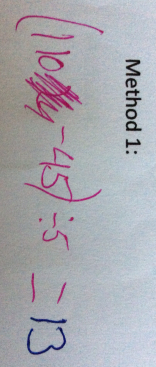 Method 1:
(110 - 45) ÷ 5 = 13